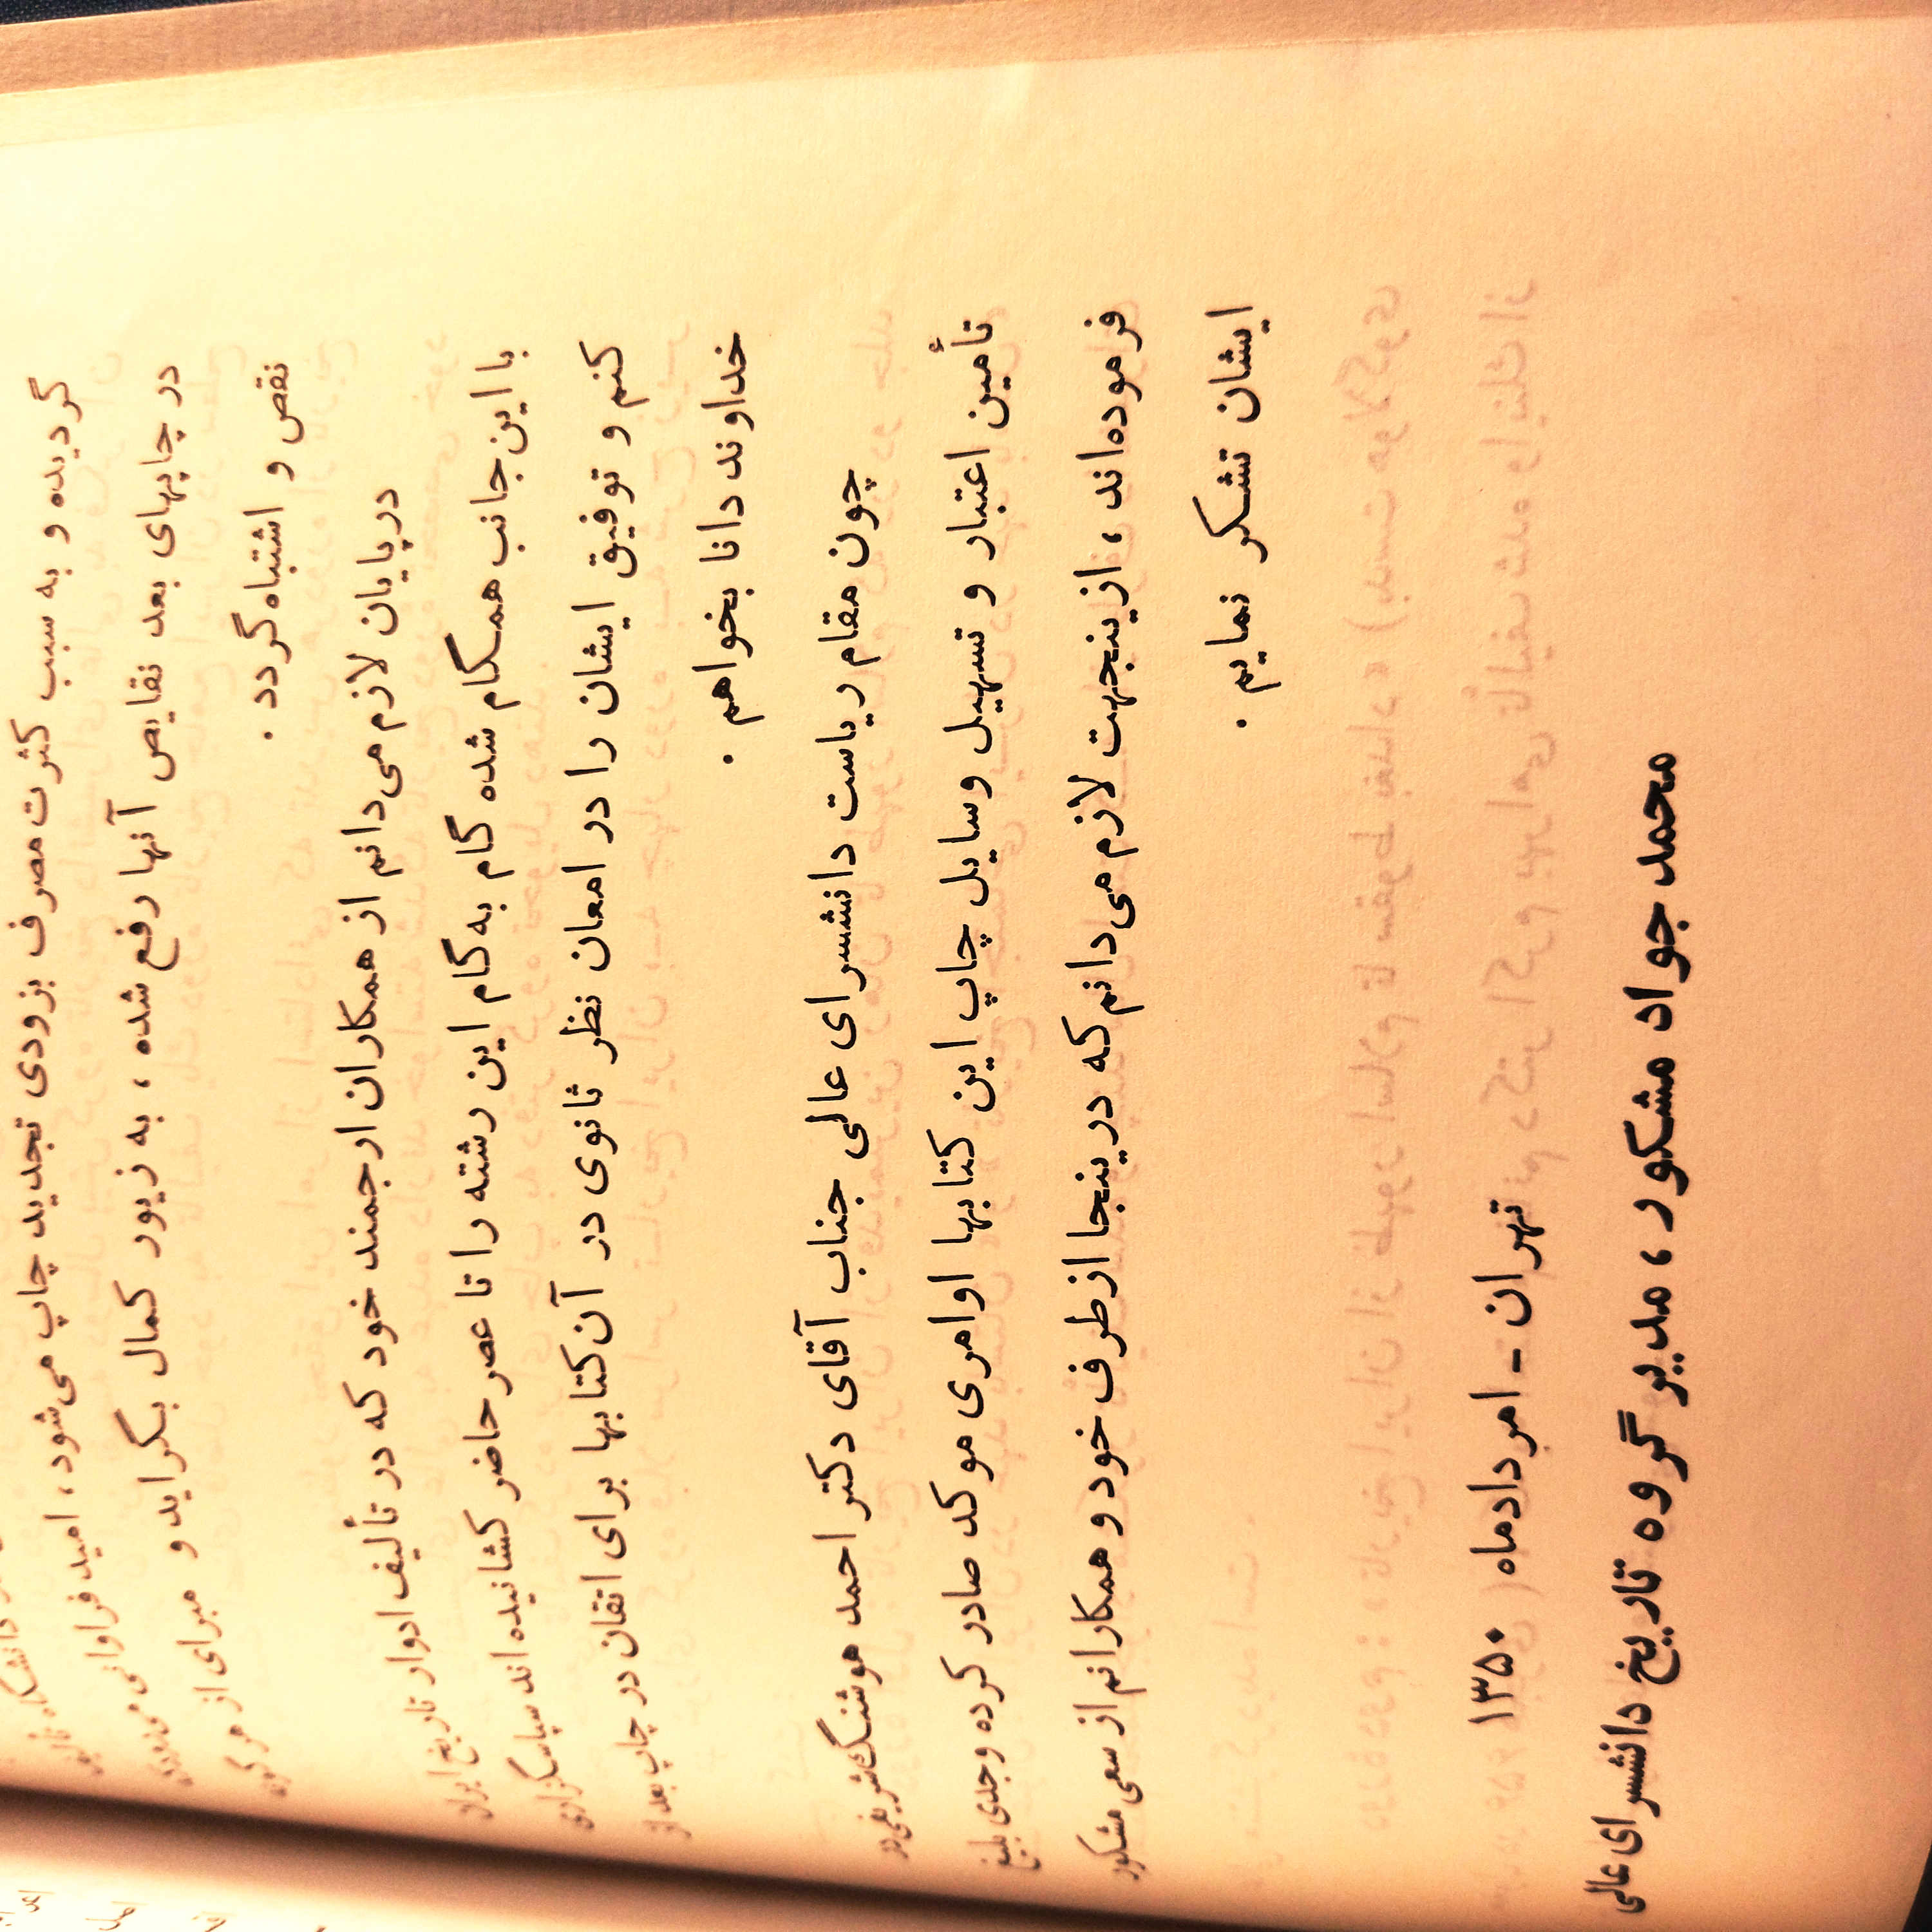 گردیده و به سبب کثرت مصرف بزودی تجدید چاپ می‌شود، امید فراوانی
در چاپهای بعد نقایص آنها رفع شده، به زیور کمال بگراید و مبرای از هر گونه
نقص و اشتباه گردد.
در پایان لازم می‌دانم از همکاران ارجمند خود که در تألیف ادوار تاریخ ایران
با این جانب همگام شده گام به گام این رشته را تا عصر حاضر کشانیده‌اند سپاسگزاری
کنم و توفیق ایشان را در امعان نظر ثانوی در آن کتابها برای اتقان در چاپ بعد از
خداوند دانا بخواهم.
چون مقام ریاست دانشسرای عالی جناب آقای دکتر احمد هوشنگ شریفی در
تأمین اعتبار و تسهیل وسایل چاپ این کتابها اوامری موکد صادر کرده وجدی بلیغ
فرموده‌اند، ازینجهت لازم می‌دانم که درینجا ازطرف خود و همکارانم از سعی مشکور
ایشان تشکر نمایم.
تهران - امردادماه ۱۳۵۰
محمد جواد مشکور، مدیر گروه تاریخ دانشسرای عالی